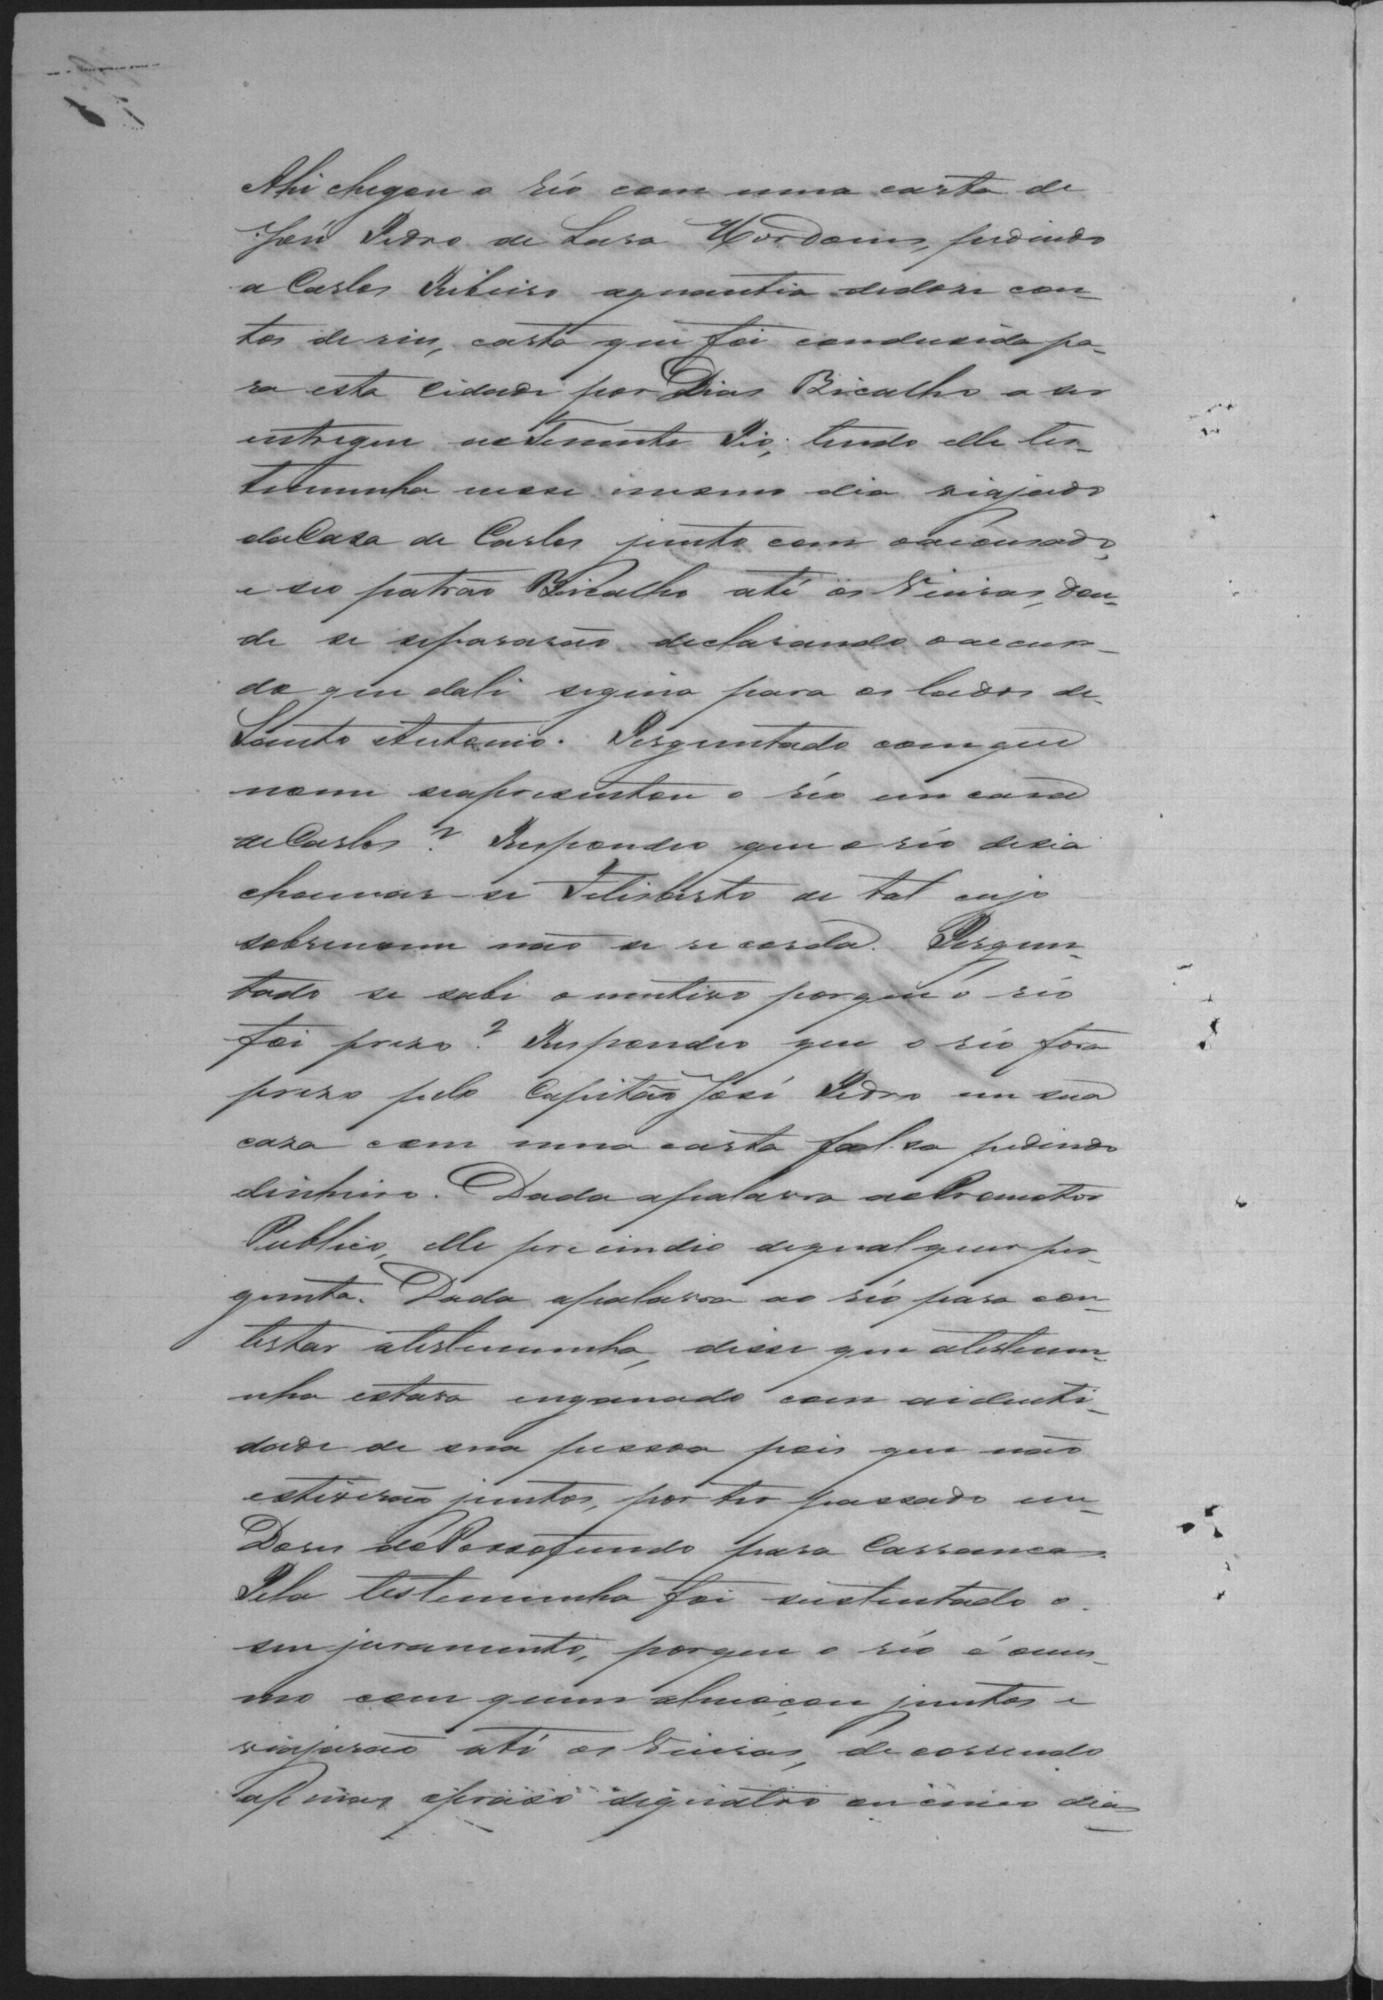 Ahi chegou o réo com uma carta de
José Pedro de Lara Mordomo, pedindo
a Carlos Ribeiro aquantia dedose con-
tos de reis, carta que foi condusida pa-
ra esta Cidade por Dias Bicalho a ser
entregue ao Tenente Pio; tendo elle tes-
temunha nesse mesmo dia viajado
da Casa de Carlos junto com oaccusado,
e seo patrão Bicalho até os Vieiras, don-
de se separarão declarando oaccusa-
do que dali seguia para os lados de
Santo Antonio. Perguntado com que
nome seapresentou o réo em casa
de Carlos? Respondeo que o réo disia
chamar-se Felisberto de tal cujo
sobrenome não se recorda. Pergun-
tado se sabe o motivo porque o réo
foi preso? Respondeo que o réo fora
preso pelo Capitão José Pedro em sua
casa com uma carta falsa pedindo
dinheiro. Dada apalavra aoPromotor
Publico, elle precindio dequalquer per-
gunta. Dada apalavra ao réo para con-
testar atestemunha, disse que atestemu-
nha estava enganado com aidenti-
dade de sua pessoa pois que não
estiverão juntos, por ter passado em
Dores do Possofundo para Carrancas.
Pela testemunha foi sustentado o
seu juramento, porque o réo é omes-
mo com quem almoçou juntos e
viajarão até os Vieiras, decorrendo
apenas oprazo dequatro ou cinco dias